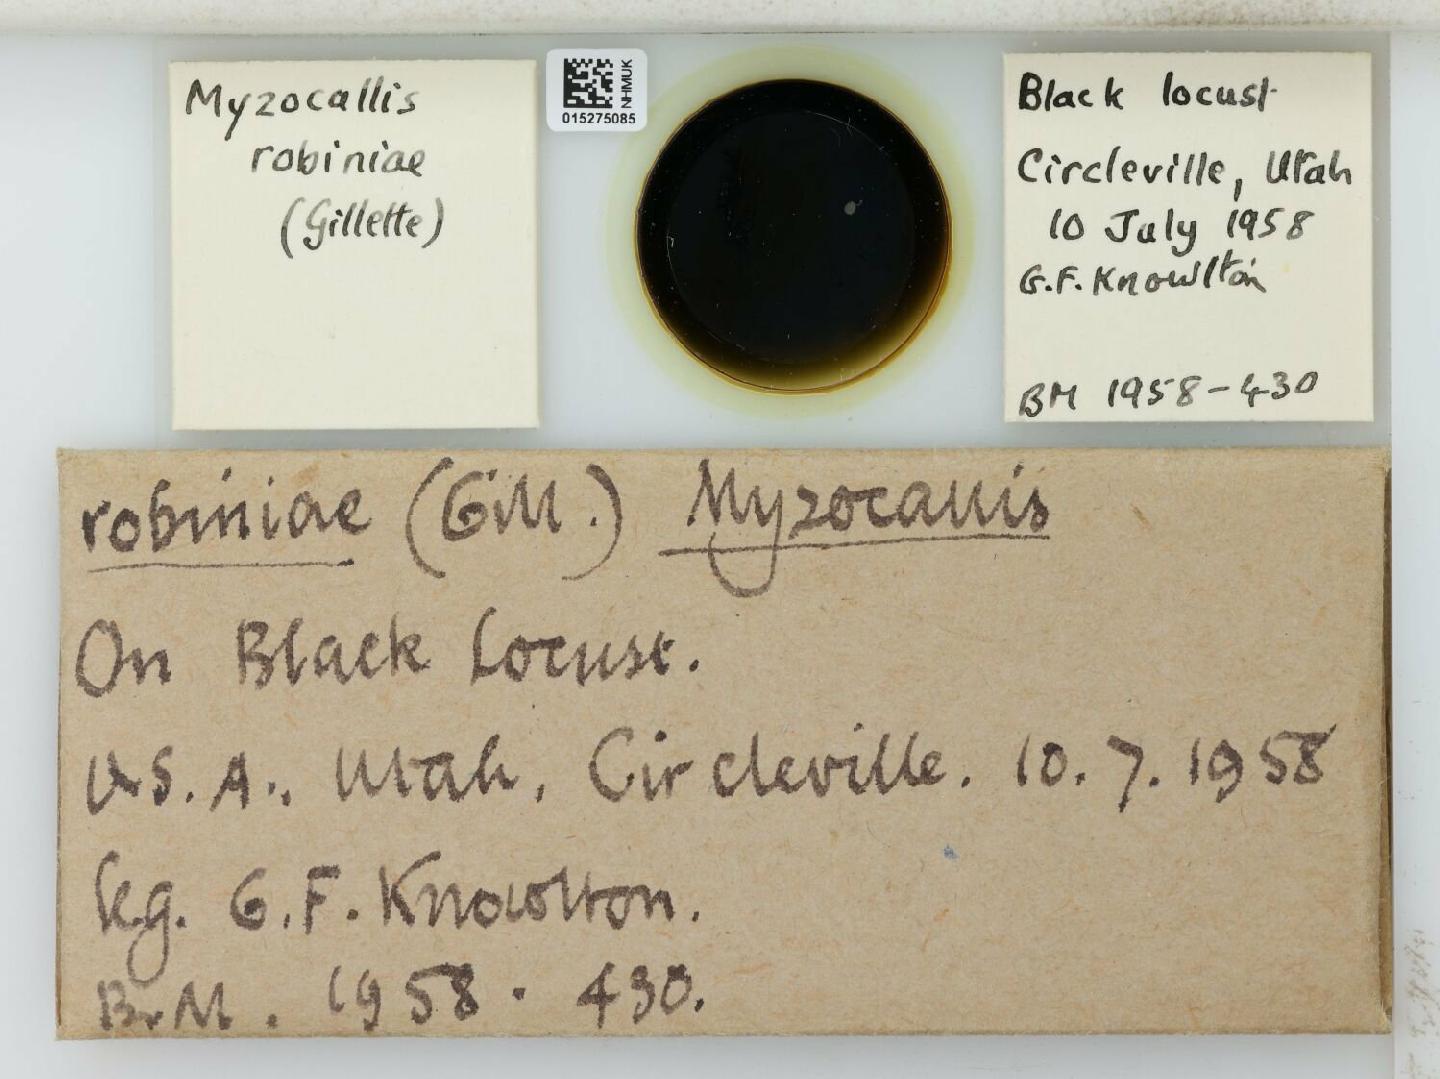 Myzocallis
robiniae
(Gillette)
NHMUK
015275085
Black locust
Circleville, Utah
10 July 1958
G.F. Knowlton
BM 1958-430
robiniae (Gill.) Myzocallis
On Black Locust.
U.S.A., Utah, Circleville. 10.7.1958
leg. G.F. Knowlton.
B.M. 1958. 430.